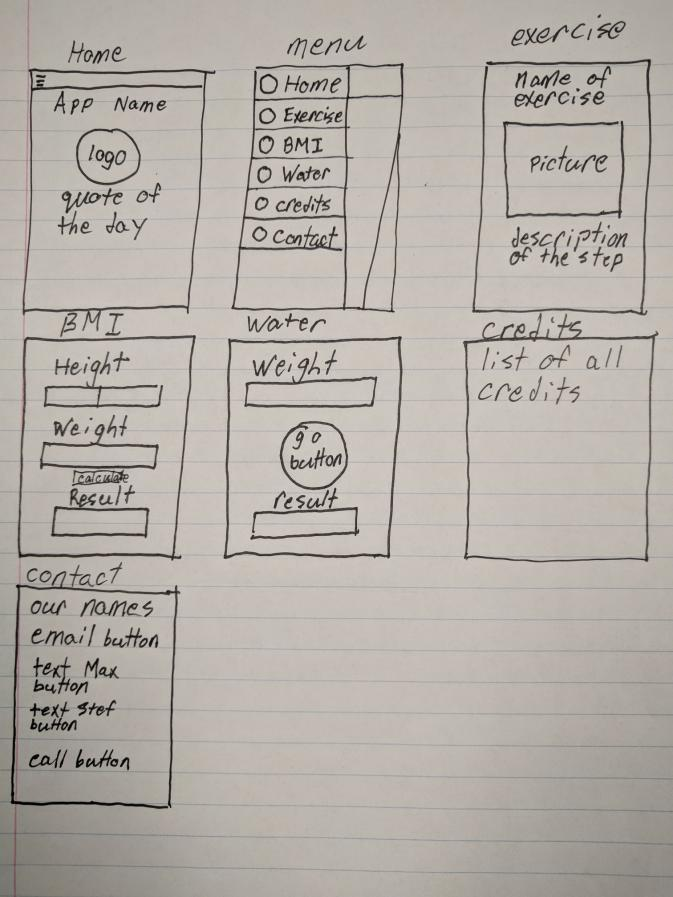 Home
App Name
logo
quote of
the day
menu
Home
Exercise
BMI
Water
credits
Contact
exercise
name of
exercise
picture
description
of the step
BMI
Height
Weight
calculate
Result
Water
Weight
go
button
result
credits
list of all
credits
contact
our names
email button
text Max
button
text Stef
button
call button